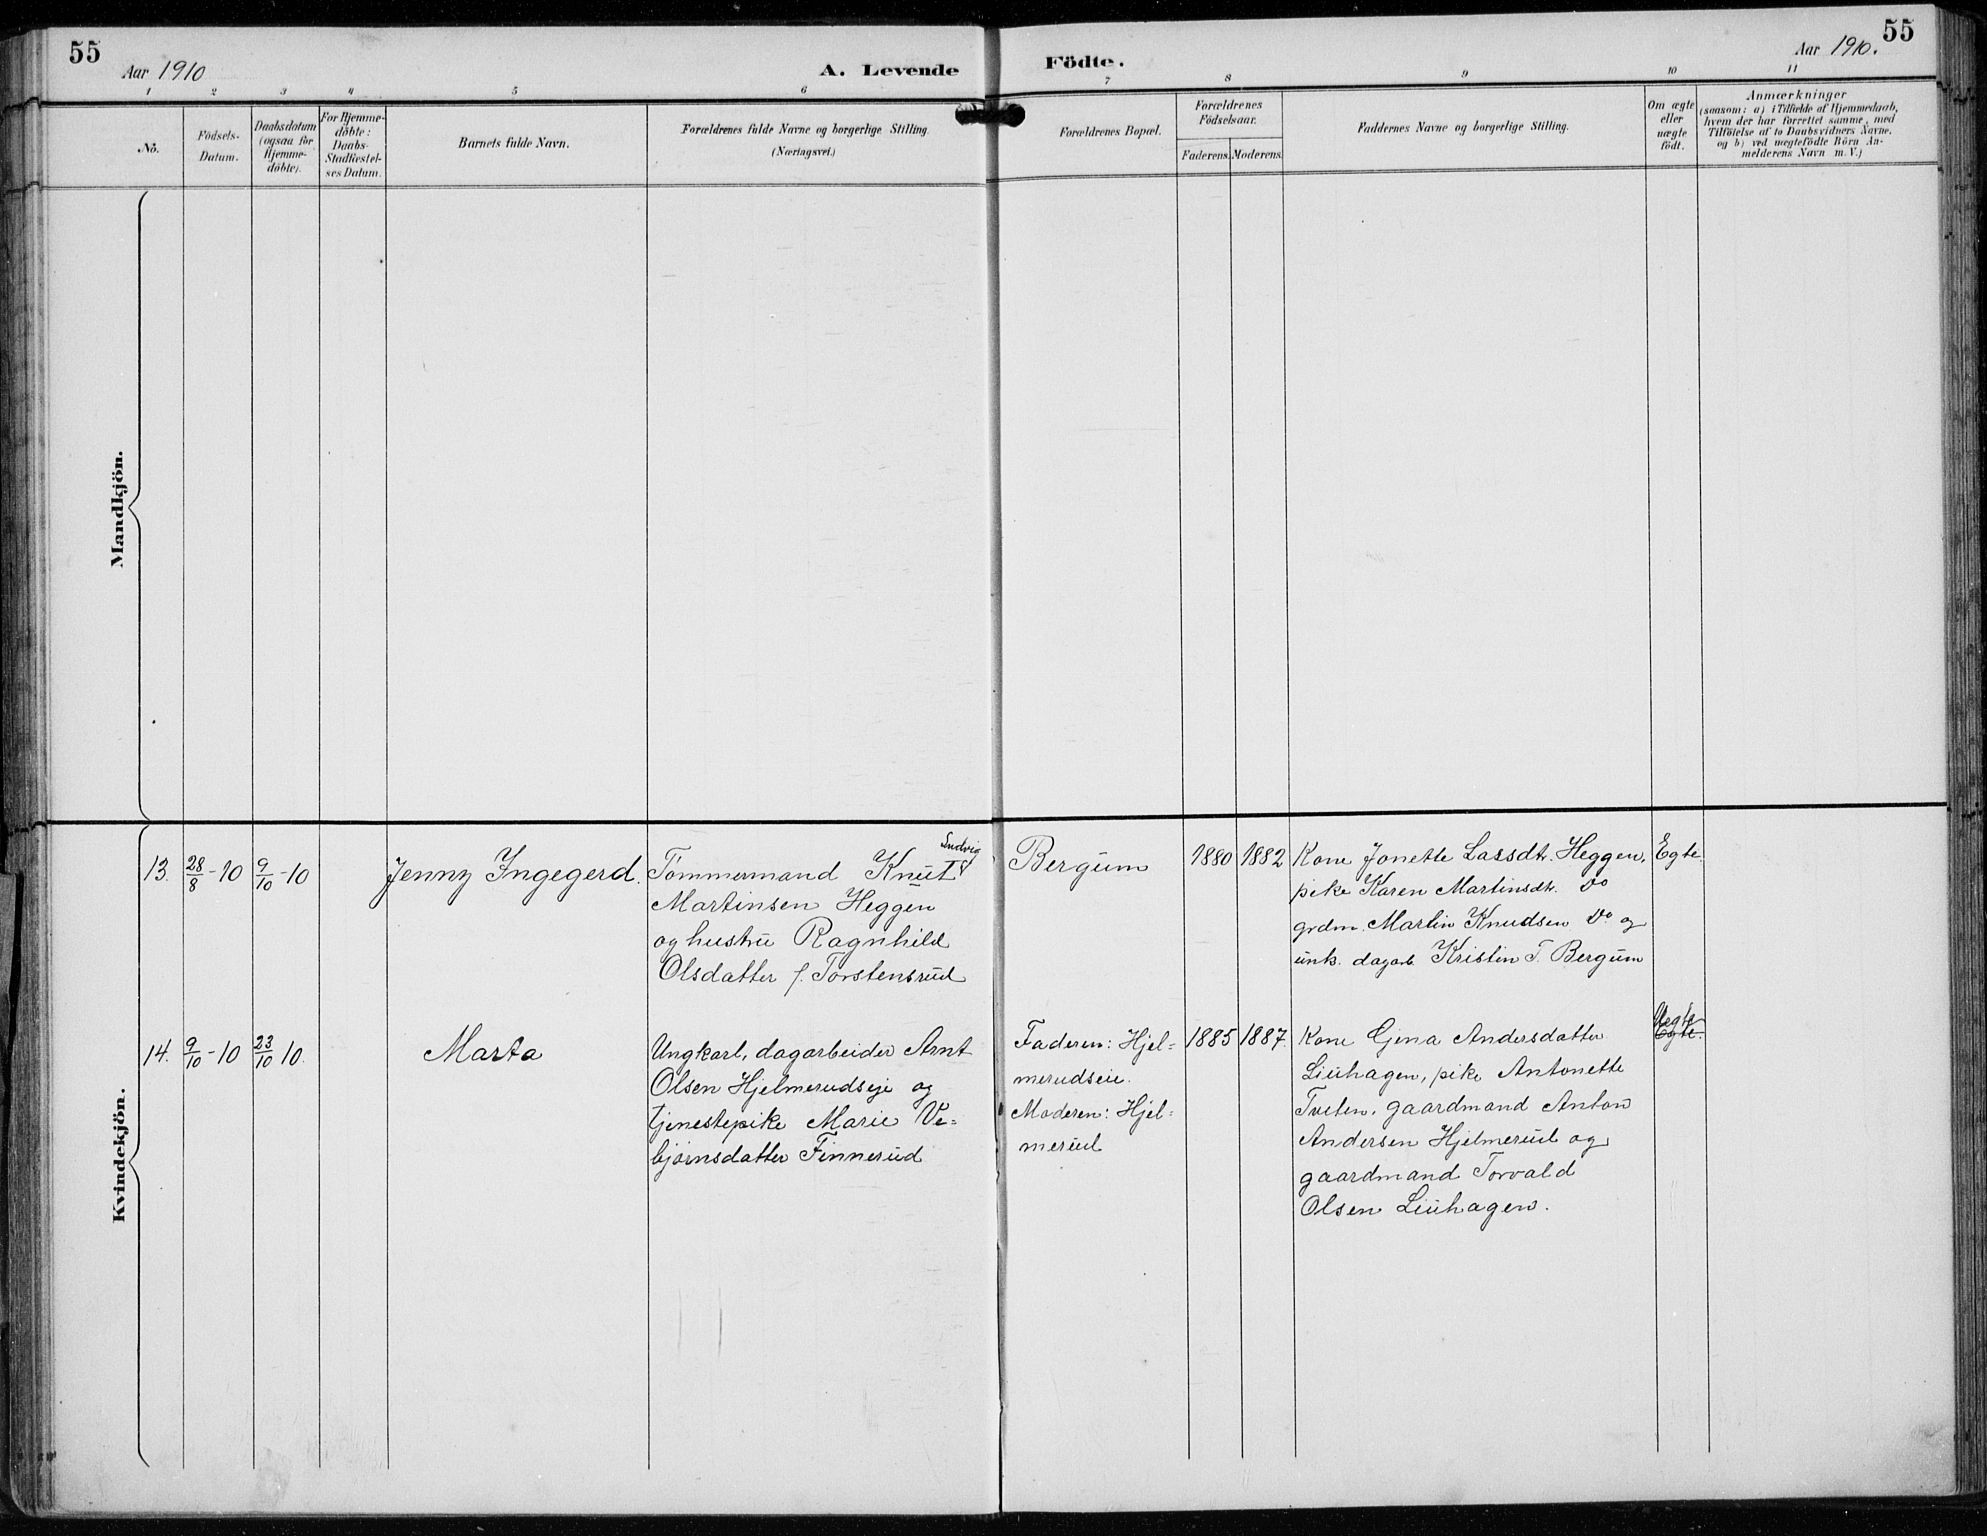 55
Aar 1910
A. Levende
Födte.
Aar 1910.
55
1 2 3 4 5 6 7 8 9 10 11
No.
Födsels-
Datum.
Daabsdatum
(ogsaa for
Hjemme-
döbte).
For Hjemme-
döbte:
Daabs-
Stadfæstel-
ses Datum.
Barnets fulde Navn.
Forældrenes fulde Navne og borgerlige Stilling.
(Næringsvei.)
Forældrenes Bopæl.
Forældrenes
Födselsaar.
Faderens. Moderens.
Faddernes Navne og borgerlige Stilling.
Om ægte
eller
uægte
födt.
Anmærkninger
(saasom: a) i Tilfælde af Hjemmedaab,
hvem der har forrettet samme, med
Tilföielse af to Daabsvidners Navne,
og b) ved uægtefödte Börn An-
melderens Navn m. V.)
Mandkjön.
Kvindekjön.
13. 28/8-10 9/10-10
Jenny Ingegerd.
Ludvig
Tömmermand Knut
Martinsen Heggen
og hustru Ragnhild
Olsdatter f. Torstensrud
Bergum
1880 1882
Kone Jonette Larsdtr. Heggen,
pike Karen Martinsdtr. Do
grdm. Martin Knudsen Do og
unk. dagarb. Kristen T. Bergum
Egte
14. 9/10-10 23/10 10.
Marta
Ungkarl, dagarbeider Arnt
Olsen Hjelmerudseje og
tjenestepike Marie Ve=
björnsdatter Finnerud
Faderen: Hjel=
merudseie.
Moderen: Hjel=
merud
1885 1887
Kone Gina Andersdatter
Liuhagen, pike Antonette
Tveten, gaardmand Anton
Andersen Hjelmerud og
gaardmand Torvald
Olsen Liuhagen.
Uegte
Egte.